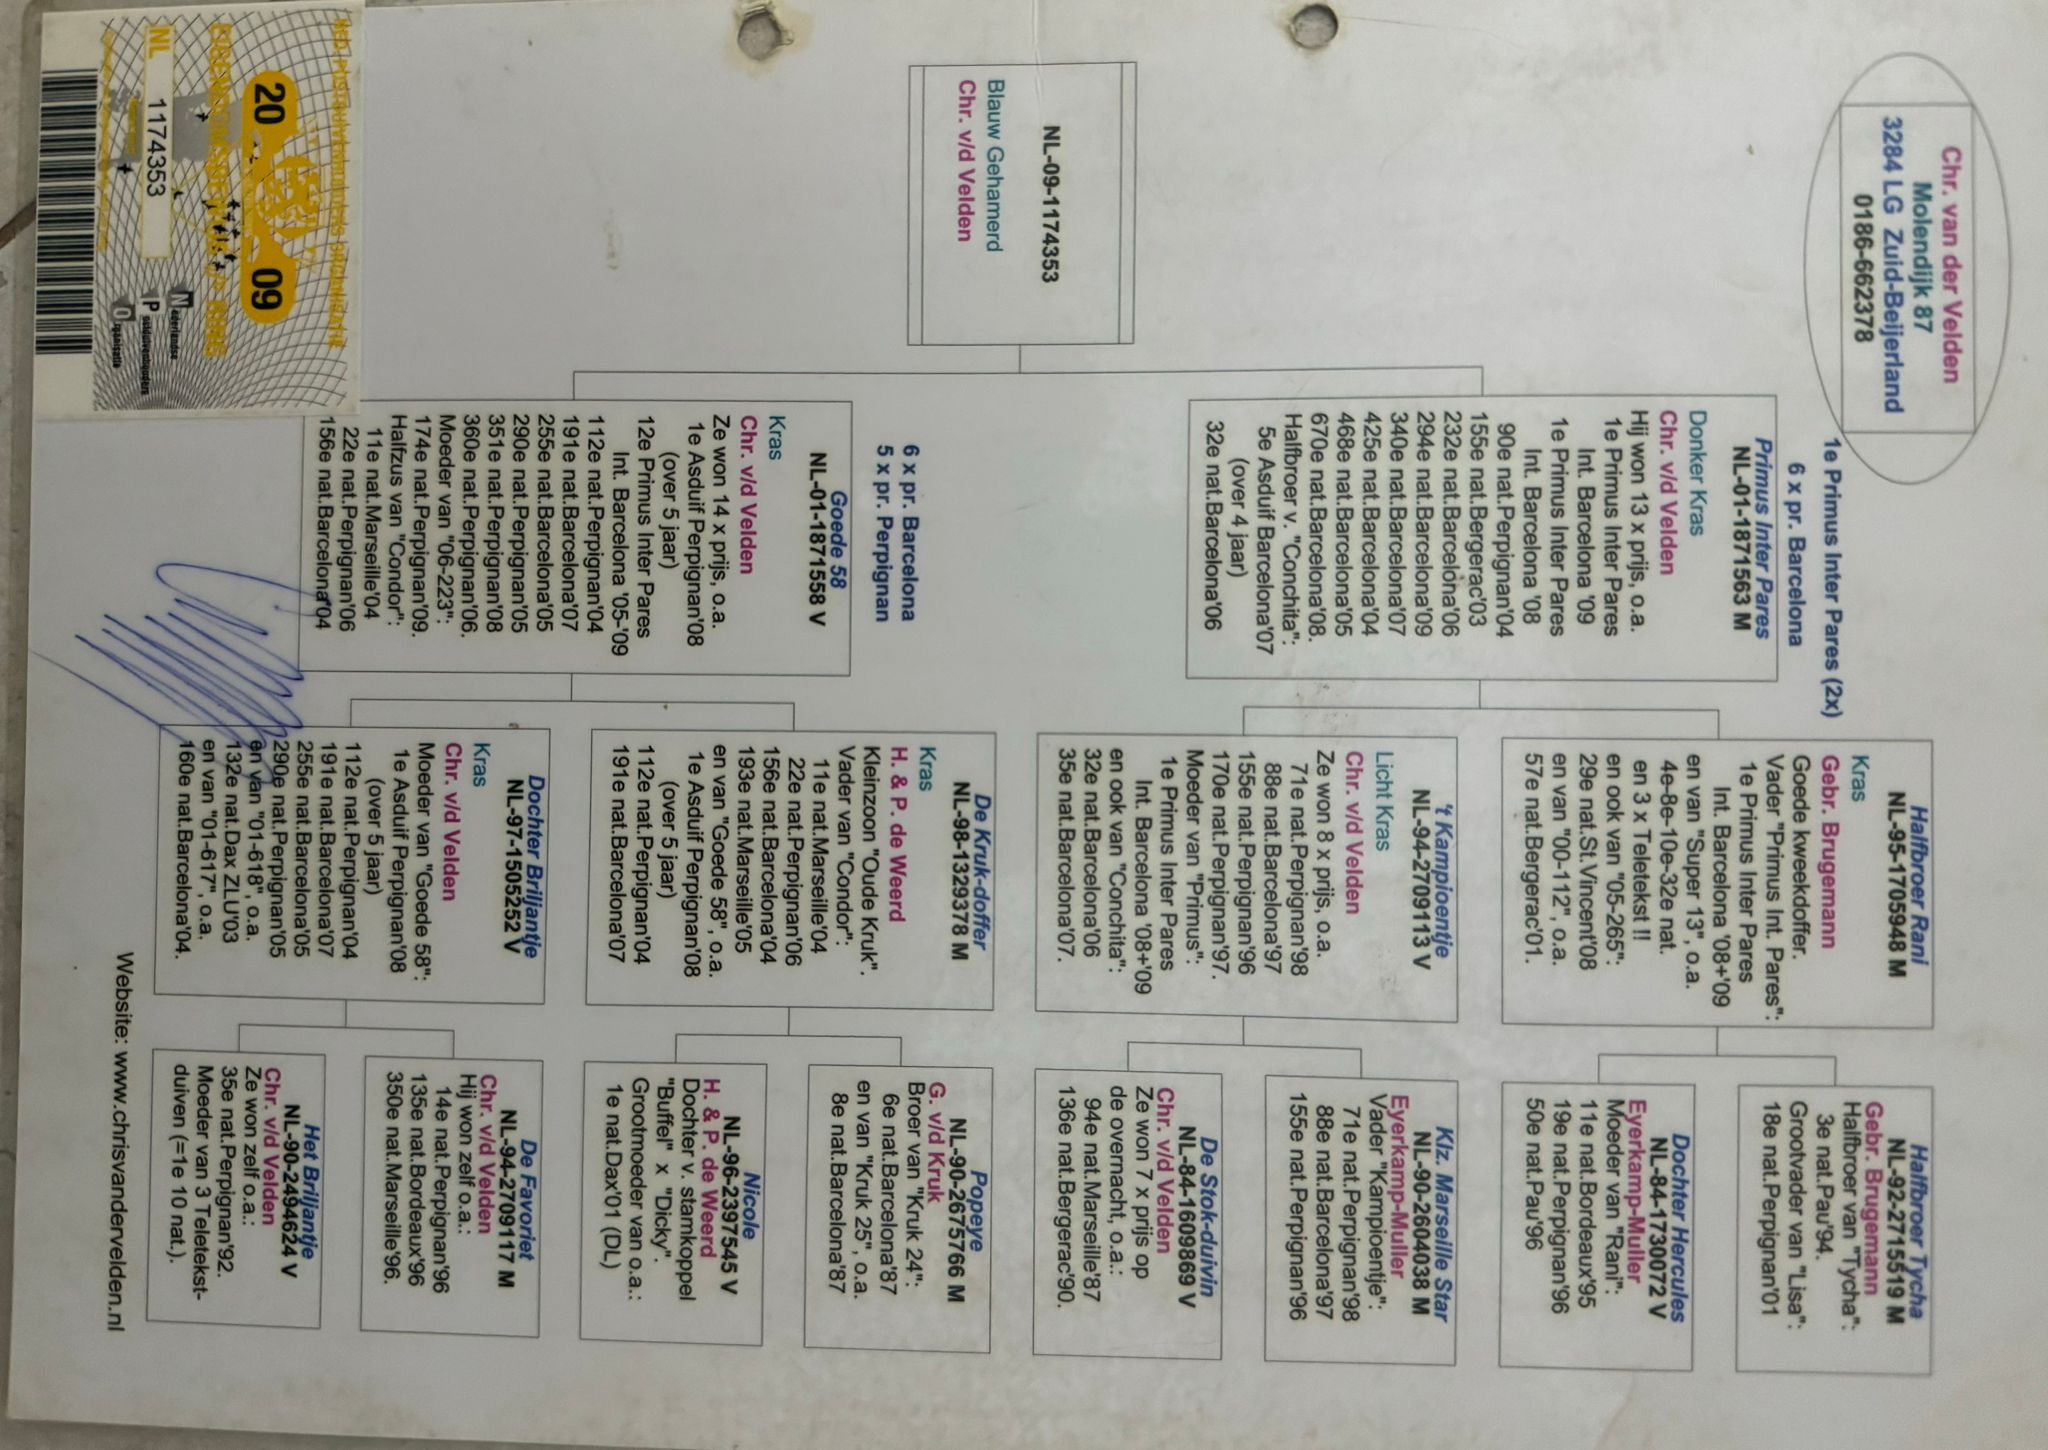 Chr. van der Velden
Molendijk 87
3284 LG Zuid-Beijerland
0186-662378
NL-09-1174353
Blauw Gehamerd
Chr. v/d Velden
1e Primus Inter Pares (2x)
6 x pr. Barcelona
Primus Inter Pares
NL-01-1871563 M
Donker Kras
Chr. v/d Velden
Hij won 13 x prijs, o.a.
1e Primus Inter Pares
Int. Barcelona '09
1e Primus Inter Pares
Int. Barcelona '08
90e nat.Perpignan'04
155e nat.Bergerac'03
232e nat.Barcelona'06
294e nat.Barcelona'09
340e nat.Barcelona'07
425e nat.Barcelona'04
468e nat.Barcelona'05
670e nat.Barcelona'08.
Halfbroer v. "Conchita":
5e Asduif Barcelona'07
(over 4 jaar)
32e nat.Barcelona'06
6 x pr. Barcelona
5 x pr. Perpignan
Goede 58
NL-01-1871558 V
Kras
Chr. v/d Velden
Ze won 14 x prijs, o.a.
1e Asduif Perpignan'08
(over 5 jaar)
12e Primus Inter Pares
Int. Barcelona '05-'09
112e nat.Perpignan'04
191e nat.Barcelona'07
255e nat.Barcelona'05
290e nat.Perpignan'05
351e nat.Perpignan'08
360e nat.Perpignan'06.
Moeder van "06-223":
174e nat.Perpignan'09.
Halfzus van "Condor":
11e nat.Marseille'04
22e nat.Perpignan'06
156e nat.Barcelona'04
Halfbroer Rani
NL-95-1705948 M
Kras
Gebr. Brugemann
Goede kweekdoffer.
Vader "Primus Int. Pares":
1e Primus Inter Pares
Int. Barcelona '08+'09
en van "Super 13", o.a.
4e-8e-10e-32e nat.
en 3 x Teletekst !!
en ook van "05-265":
29e nat.St.Vincent'08
en van "00-112", o.a.
57e nat.Bergerac'01.
't Kampioentje
NL-94-2709113 V
Licht Kras
Chr. v/d Velden
Ze won 8 x prijs, o.a.
71e nat.Perpignan'98
88e nat.Barcelona'97
155e nat.Perpignan'96
170e nat.Perpignan'97.
Moeder van "Primus":
1e Primus Inter Pares
Int. Barcelona '08+'09
en ook van "Conchita":
32e nat.Barcelona'06
35e nat.Barcelona'07.
De Kruk-doffer
NL-98-1329378 M
Kras
H. & P. de Weerd
Kleinzoon "Oude Kruk".
Vader van "Condor":
11e nat.Marseille'04
22e nat.Perpignan'06
156e nat.Barcelona'04
193e nat.Marseille'05
en van "Goede 58", o.a.
1e Asduif Perpignan'08
(over 5 jaar)
112e nat.Perpignan'04
191e nat.Barcelona'07
Dochter Briljantje
NL-97-1505252 V
Kras
Chr. v/d Velden
Moeder van "Goede 58":
1e Asduif Perpignan'08
(over 5 jaar)
112e nat.Perpignan'04
191e nat.Barcelona'07
255e nat.Barcelona'05
290e nat.Perpignan'05
en van "01-618", o.a.
132e nat.Dax ZLU'03
en van "01-617", o.a.
160e nat.Barcelona'04.
Halfbroer Tycha
NL-92-2715519 M
Gebr. Brugemann
Halfbroer van "Tycha":
3e nat.Pau'94.
Grootvader van "Lisa":
18e nat.Perpignan'01
Dochter Hercules
NL-84-1730072 V
Eyerkamp-Muller
Moeder van "Rani":
11e nat.Bordeaux'95
19e nat.Perpignan'96
50e nat.Pau'96
Klz. Marseille Star
NL-90-2604038 M
Eyerkamp-Muller
Vader "Kampioentje":
71e nat.Perpignan'98
88e nat.Barcelona'97
155e nat.Perpignan'96
De Stok-duivin
NL-84-1609869 V
Chr. v/d Velden
Ze won 7 x prijs op
de overnacht, o.a.:
94e nat.Marseille'87
136e nat.Bergerac'90.
Popeye
NL-90-2675766 M
G. v/d Kruk
Broer van "Kruk 24":
6e nat.Barcelona'87
en van "Kruk 25", o.a.
8e nat.Barcelona'87
Nicole
NL-96-2397545 V
H. & P. de Weerd
Dochter v. stamkoppel
"Buffel" x "Dicky".
Grootmoeder van o.a.:
1e nat.Dax'01 (DL)
De Favoriet
NL-94-2709117 M
Chr. v/d Velden
Hij won zelf o.a.:
14e nat.Perpignan'96
135e nat.Bordeaux'96
350e nat.Marseille'96.
Het Briljantje
NL-90-2494624 V
Chr. v/d Velden
Ze won zelf o.a.:
35e nat.Perpignan'92.
Moeder van 3 Teletekst-
duiven (=1e 10 nat.).
Website: www.chrisvandervelden.nl
20 09
NL 1174353
Nederlandse
Postduivenhouders
Organisatie